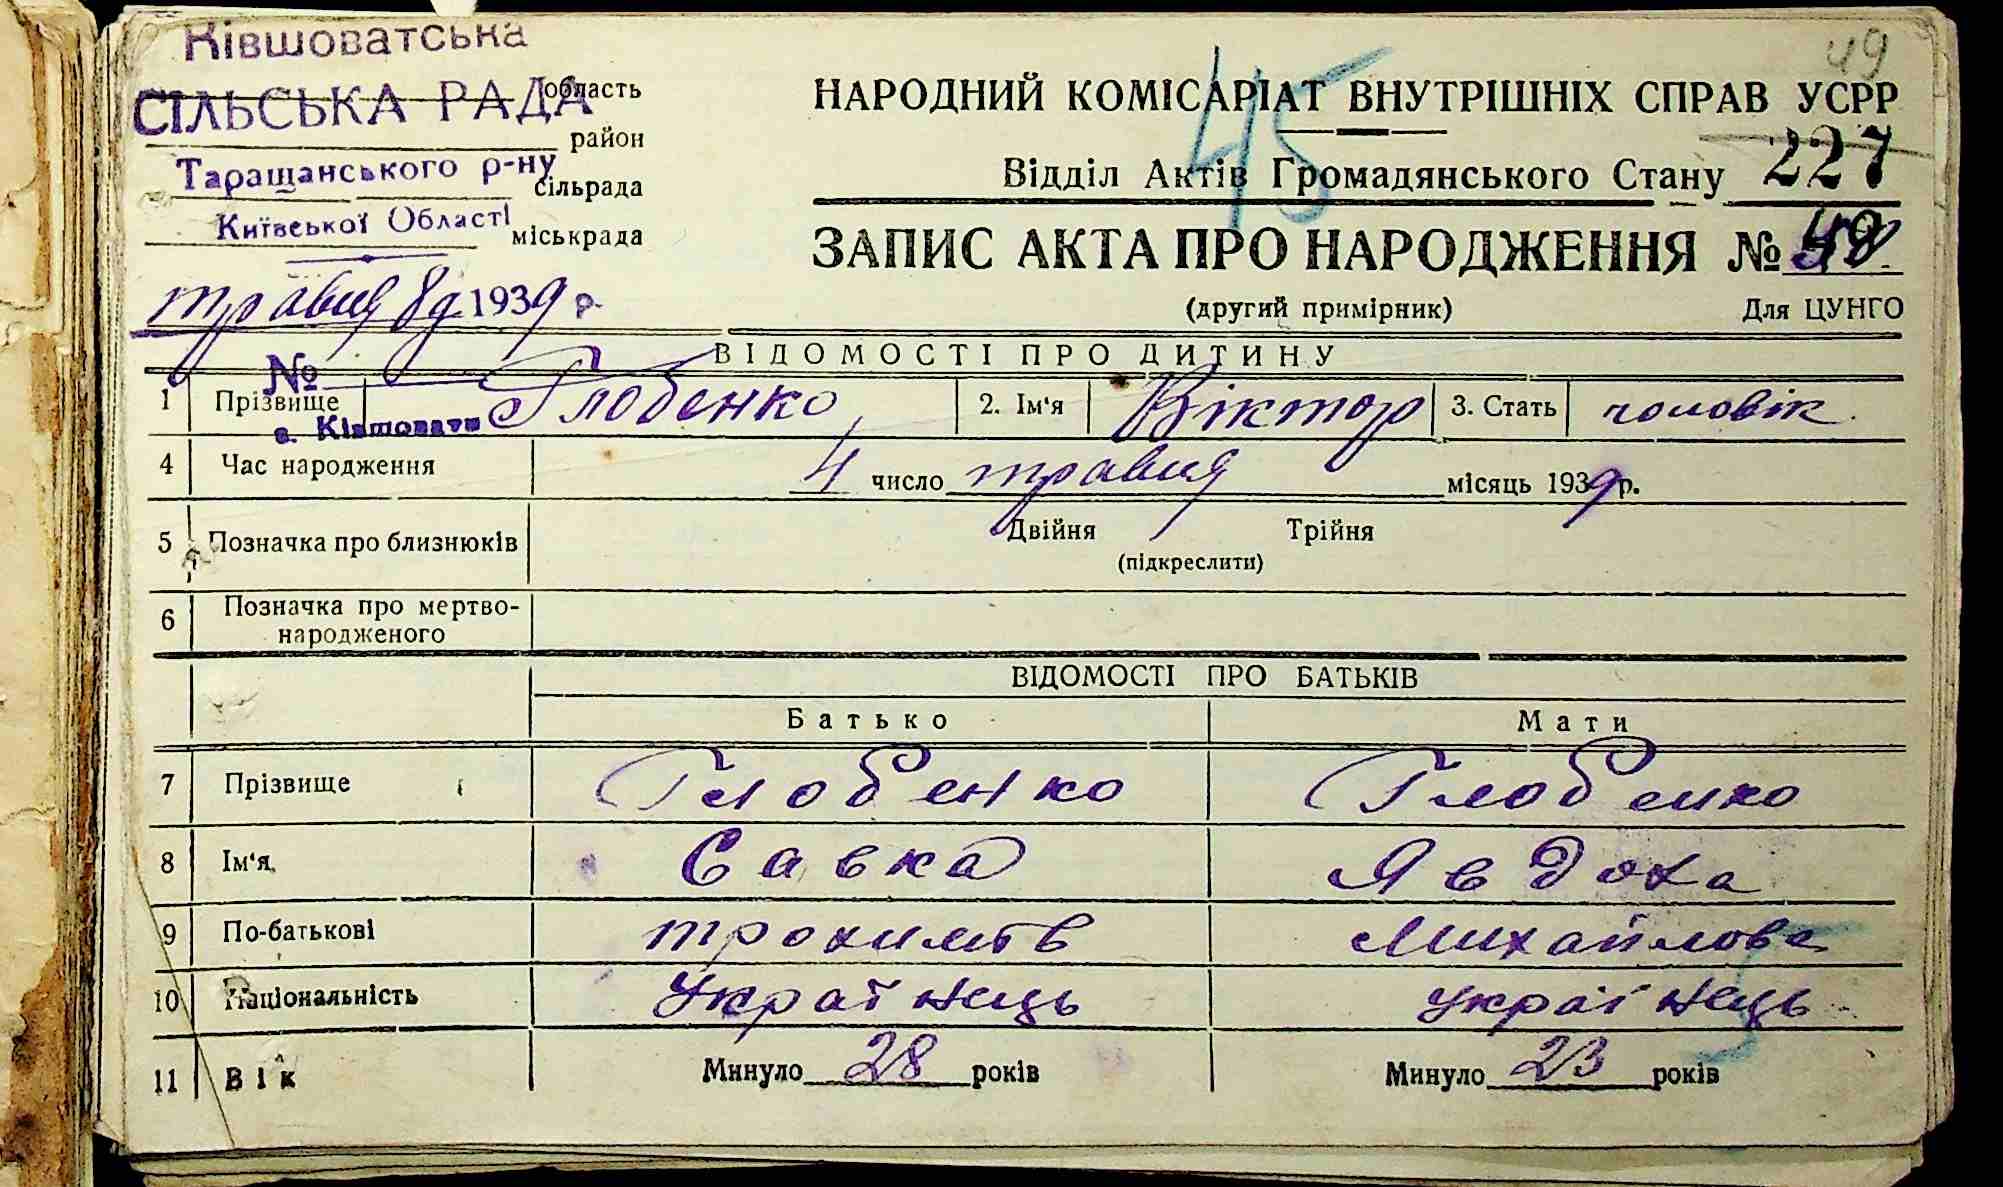 Ківшоватська
СІЛЬСЬКА РАДА область
район
Таращанського р-ну сільрада
Київської Області міськрада
травня 8д 1939 р.
№
с. Ківшовати
49
45
НАРОДНИЙ КОМІСАРІАТ ВНУТРІШНІХ СПРАВ УСРР
Відділ Актів Громадянського Стану 227
ЗАПИС АКТА ПРО НАРОДЖЕННЯ №
(другий примірник) Для ЦУНГО
ВІДОМОСТІ ПРО ДИТИНУ
1 Прізвище Глобенко 2. Ім'я Віктор 3. Стать чоловік
4 Час народження 4 число травня місяць 1939 р.
5 Позначка про близнюків Двійня Трійня
(підкреслити)
6 Позначка про мертво-
народженого
ВІДОМОСТІ ПРО БАТЬКІВ
Батько Мати
7 Прізвище Глобенко Глобенко
8 Ім'я Савка Явдоха
9 По-батькові Трохимів Михайлова
10 Національність Українець Українець
11 Вік Минуло 28 років Минуло 23 років